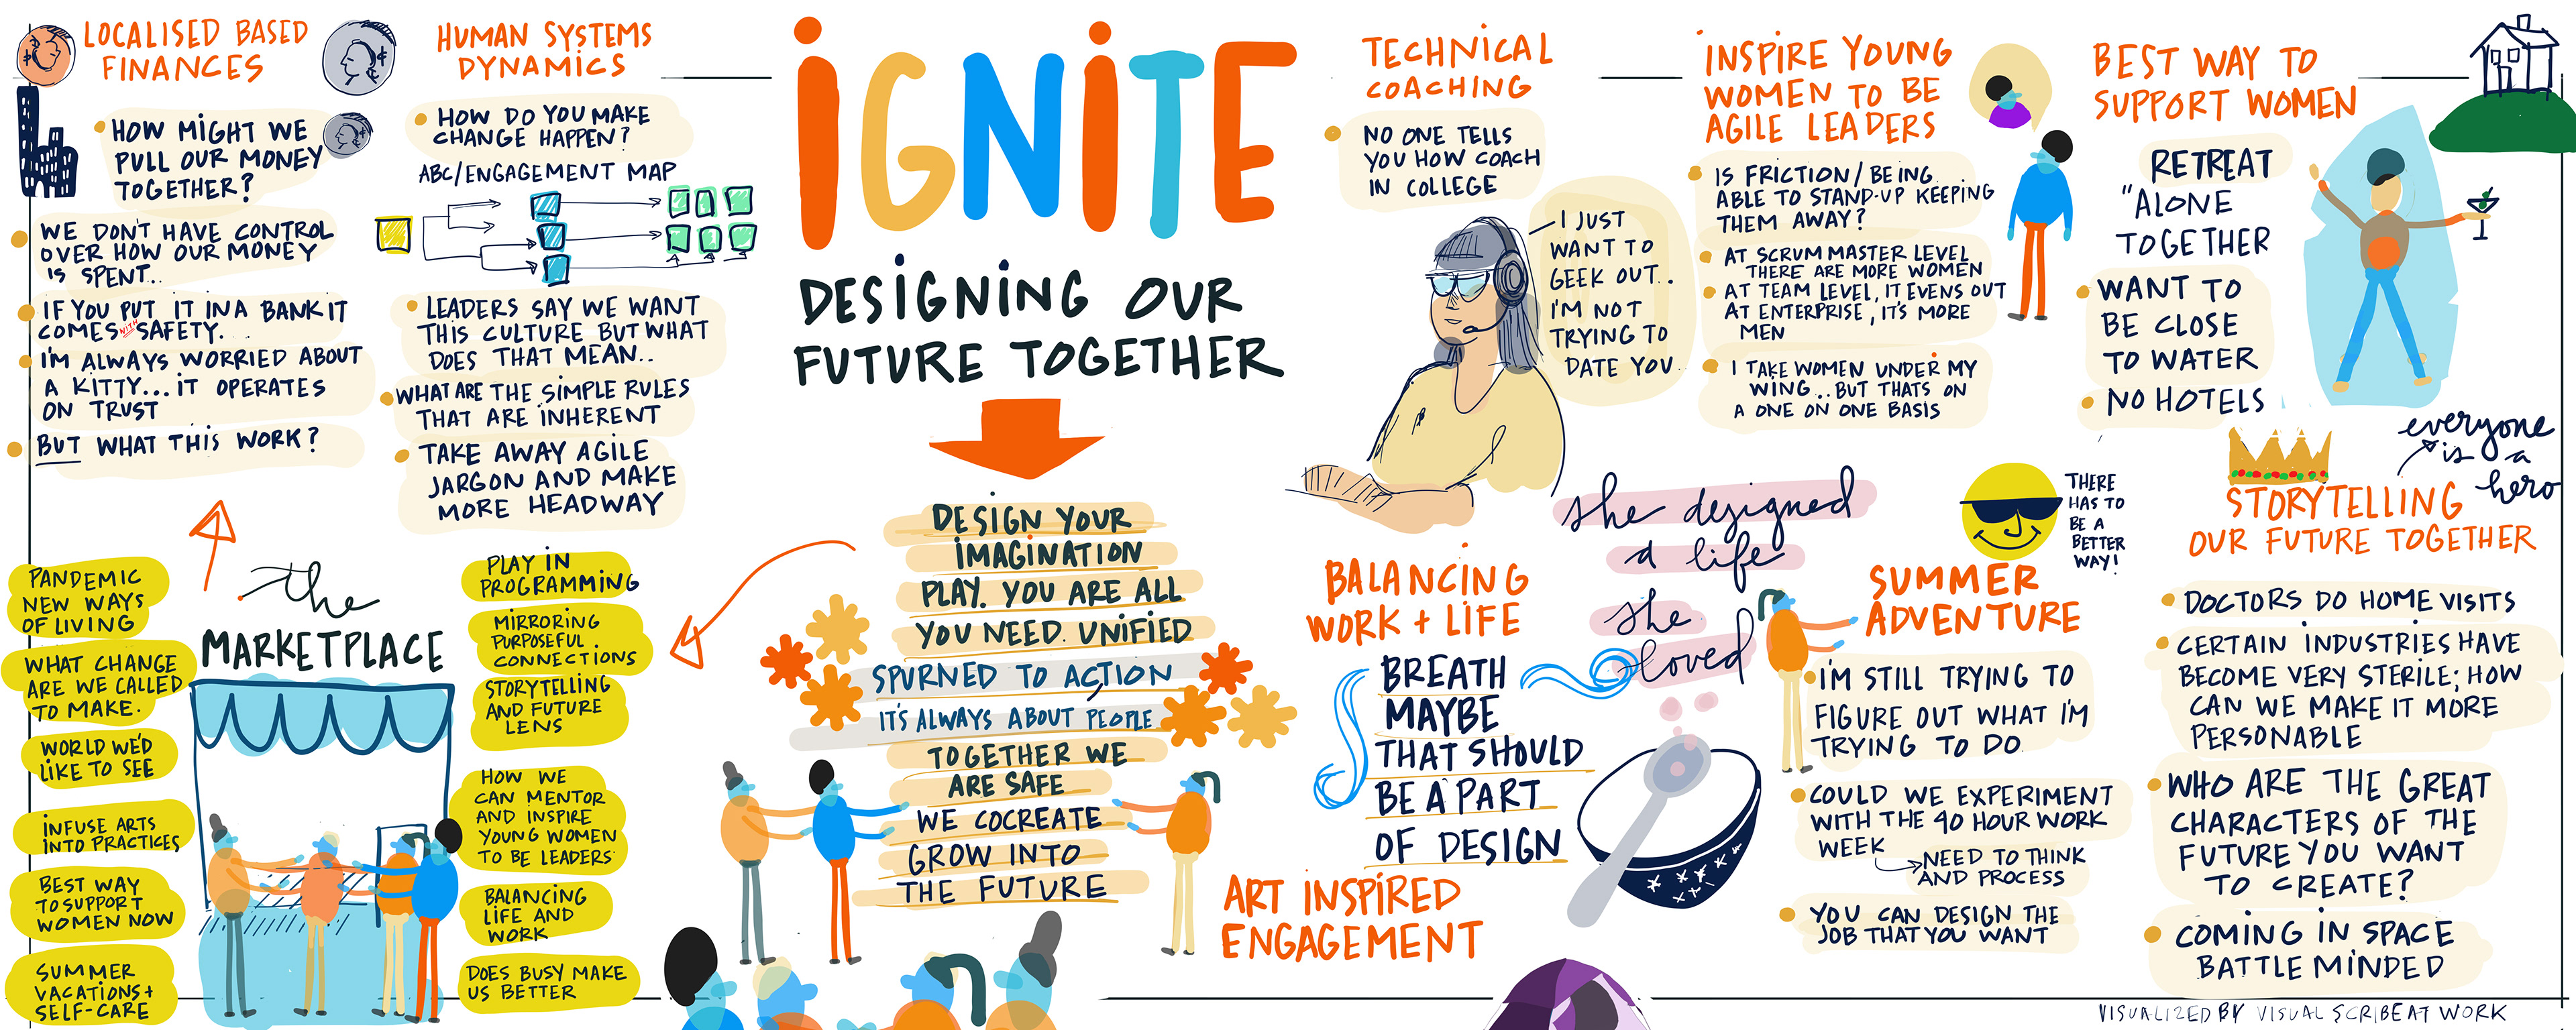 LOCALISED BASED
FINANCES
HOW MIGHT WE
PULL OUR MONEY
TOGETHER?
WE DON'T HAVE CONTROL
OVER HOW OUR MONEY
IS SPENT...
IF YOU PUT IT IN A BANK IT
COMES WITH SAFETY...
I'M ALWAYS WORRIED ABOUT
A KITTY... IT OPERATES
ON TRUST
BUT WHAT THIS WORK?
HUMAN SYSTEMS
DYNAMICS
HOW DO YOU MAKE
CHANGE HAPPEN?
ABC/ENGAGEMENT MAP
LEADERS SAY WE WANT
THIS CULTURE BUT WHAT
DOES THAT MEAN..
WHAT ARE THE SIMPLE RULES
THAT ARE INHERENT
TAKE AWAY AGILE
JARGON AND MAKE
MORE HEADWAY
IGNITE
DESIGNING OUR
FUTURE TOGETHER
DESIGN YOUR
IMAGINATION
PLAY. YOU ARE ALL
YOU NEED. UNIFIED
SPURNED TO ACTION
IT'S ALWAYS ABOUT PEOPLE
TOGETHER WE
ARE SAFE
WE COCREATE
GROW INTO
THE FUTURE
the
MARKETPLACE
PANDEMIC
NEW WAYS
OF LIVING
WHAT CHANGE
ARE WE CALLED
TO MAKE.
WORLD WE'D
LIKE TO SEE
INFUSE ARTS
INTO PRACTICES
BEST WAY
TO SUPPORT
WOMEN NOW
SUMMER
VACATIONS +
SELF-CARE
PLAY IN
PROGRAMMING
MIRRORING
PURPOSEFUL
CONNECTIONS
STORYTELLING
AND FUTURE
LENS
HOW WE
CAN MENTOR
AND INSPIRE
YOUNG WOMEN
TO BE LEADERS
BALANCING
LIFE AND
WORK
DOES BUSY MAKE
US BETTER
TECHNICAL
COACHING
NO ONE TELLS
YOU HOW COACH
IN COLLEGE
I JUST
WANT TO
GEEK OUT..
I'M NOT
TRYING TO
DATE YOU
INSPIRE YOUNG
WOMEN TO BE
AGILE LEADERS
IS FRICTION/BEING
ABLE TO STAND-UP KEEPING
THEM AWAY?
AT SCRUM MASTER LEVEL
THERE ARE MORE WOMEN
AT TEAM LEVEL, IT EVENS OUT
AT ENTERPRISE, IT'S MORE
MEN
I TAKE WOMEN UNDER MY
WING... BUT THATS ON
A ONE ON ONE BASIS
BEST WAY TO
SUPPORT WOMEN
RETREAT
"ALONE
TOGETHER
WANT TO
BE CLOSE
TO WATER
NO HOTELS
she designed
a life
she
loved
BALANCING
WORK + LIFE
BREATH
MAYBE
THAT SHOULD
BE A PART
OF DESIGN
ART INSPIRED
ENGAGEMENT
THERE
HAS TO
BE A
BETTER
WAY!
SUMMER
ADVENTURE
I'M STILL TRYING TO
FIGURE OUT WHAT I'M
TRYING TO DO.
COULD WE EXPERIMENT
WITH THE 40 HOUR WORK
WEEK
NEED TO THINK
AND PROCESS
YOU CAN DESIGN THE
JOB THAT YOU WANT
everyone
is a
hero
STORYTELLING
OUR FUTURE TOGETHER
DOCTORS DO HOME VISITS
CERTAIN INDUSTRIES HAVE
BECOME VERY STERILE; HOW
CAN WE MAKE IT MORE
PERSONABLE
WHO ARE THE GREAT
CHARACTERS OF THE
FUTURE YOU WANT
TO CREATE?
COMING IN SPACE
BATTLE MINDED
VISUALIZED BY VISUAL SCRIBE AT WORK